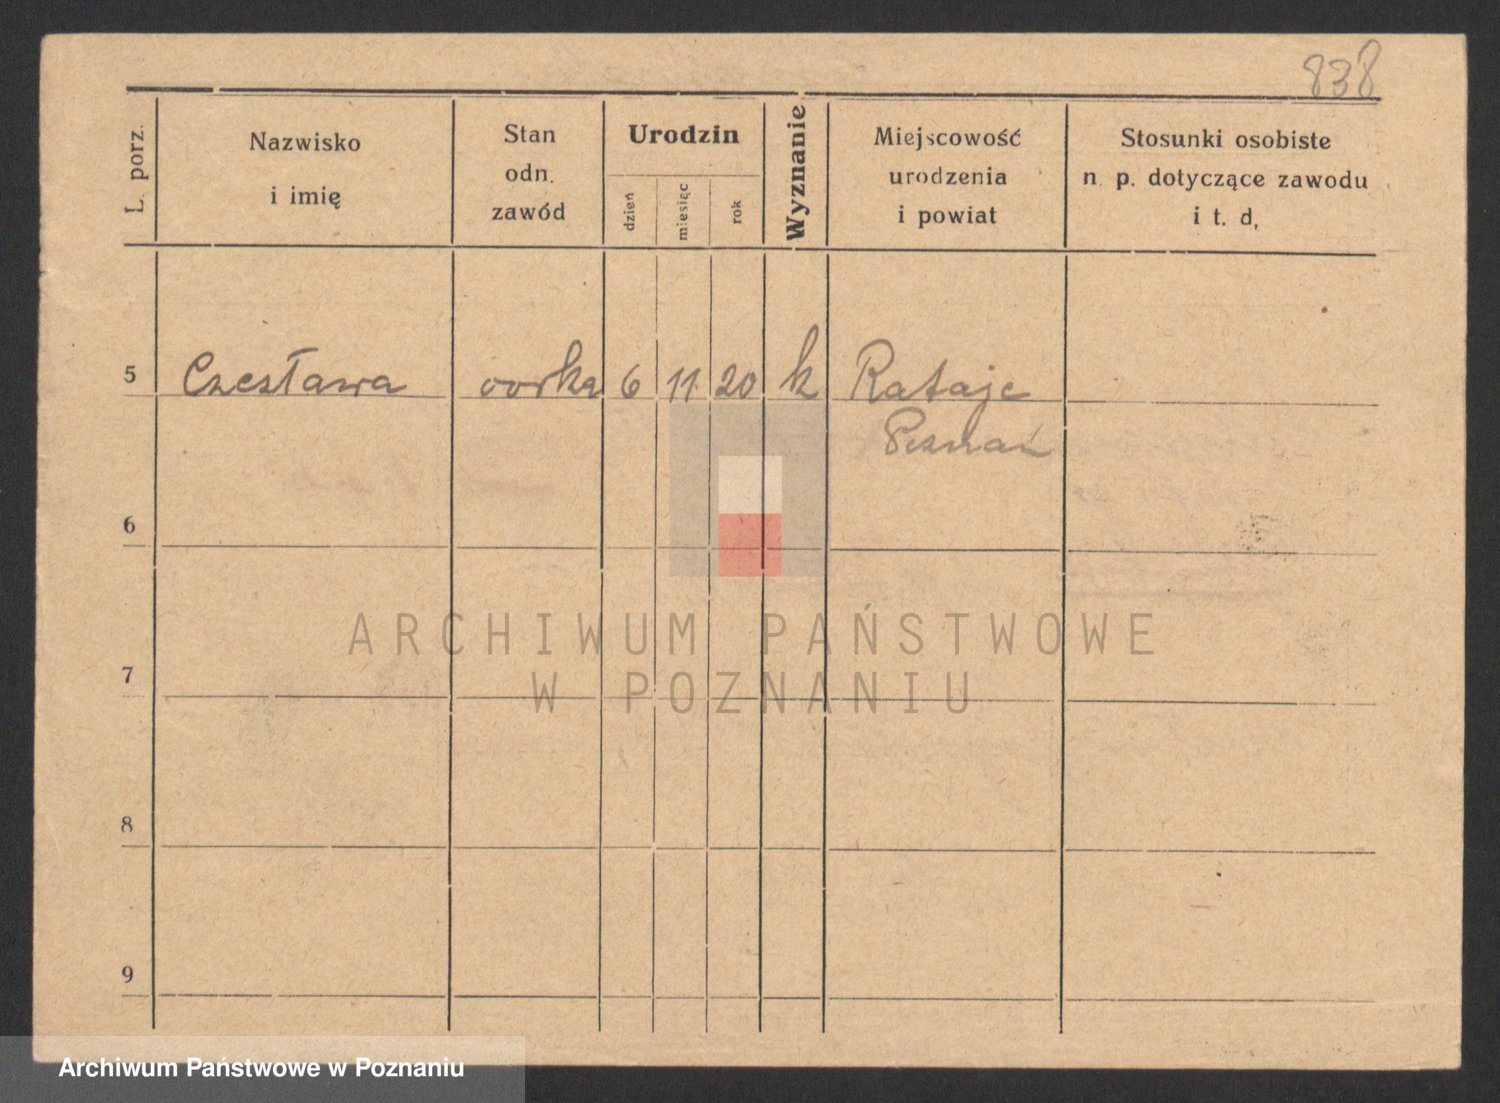 838
L. porz.
Nazwisko
i imię
Stan
odn.
zawód
Urodzin
dzień
miesiąc
rok
Wyznanie
Miejscowość
urodzenia
i powiat
Stosunki osobiste
n. p. dotyczące zawodu
i t. d,
5 Czesława córka 6 11 20 k Rataje
Poznań
6
7
8
9
ARCHIWUM PAŃSTWOWE
W POZNANIU
Archiwum Państwowe w Poznaniu